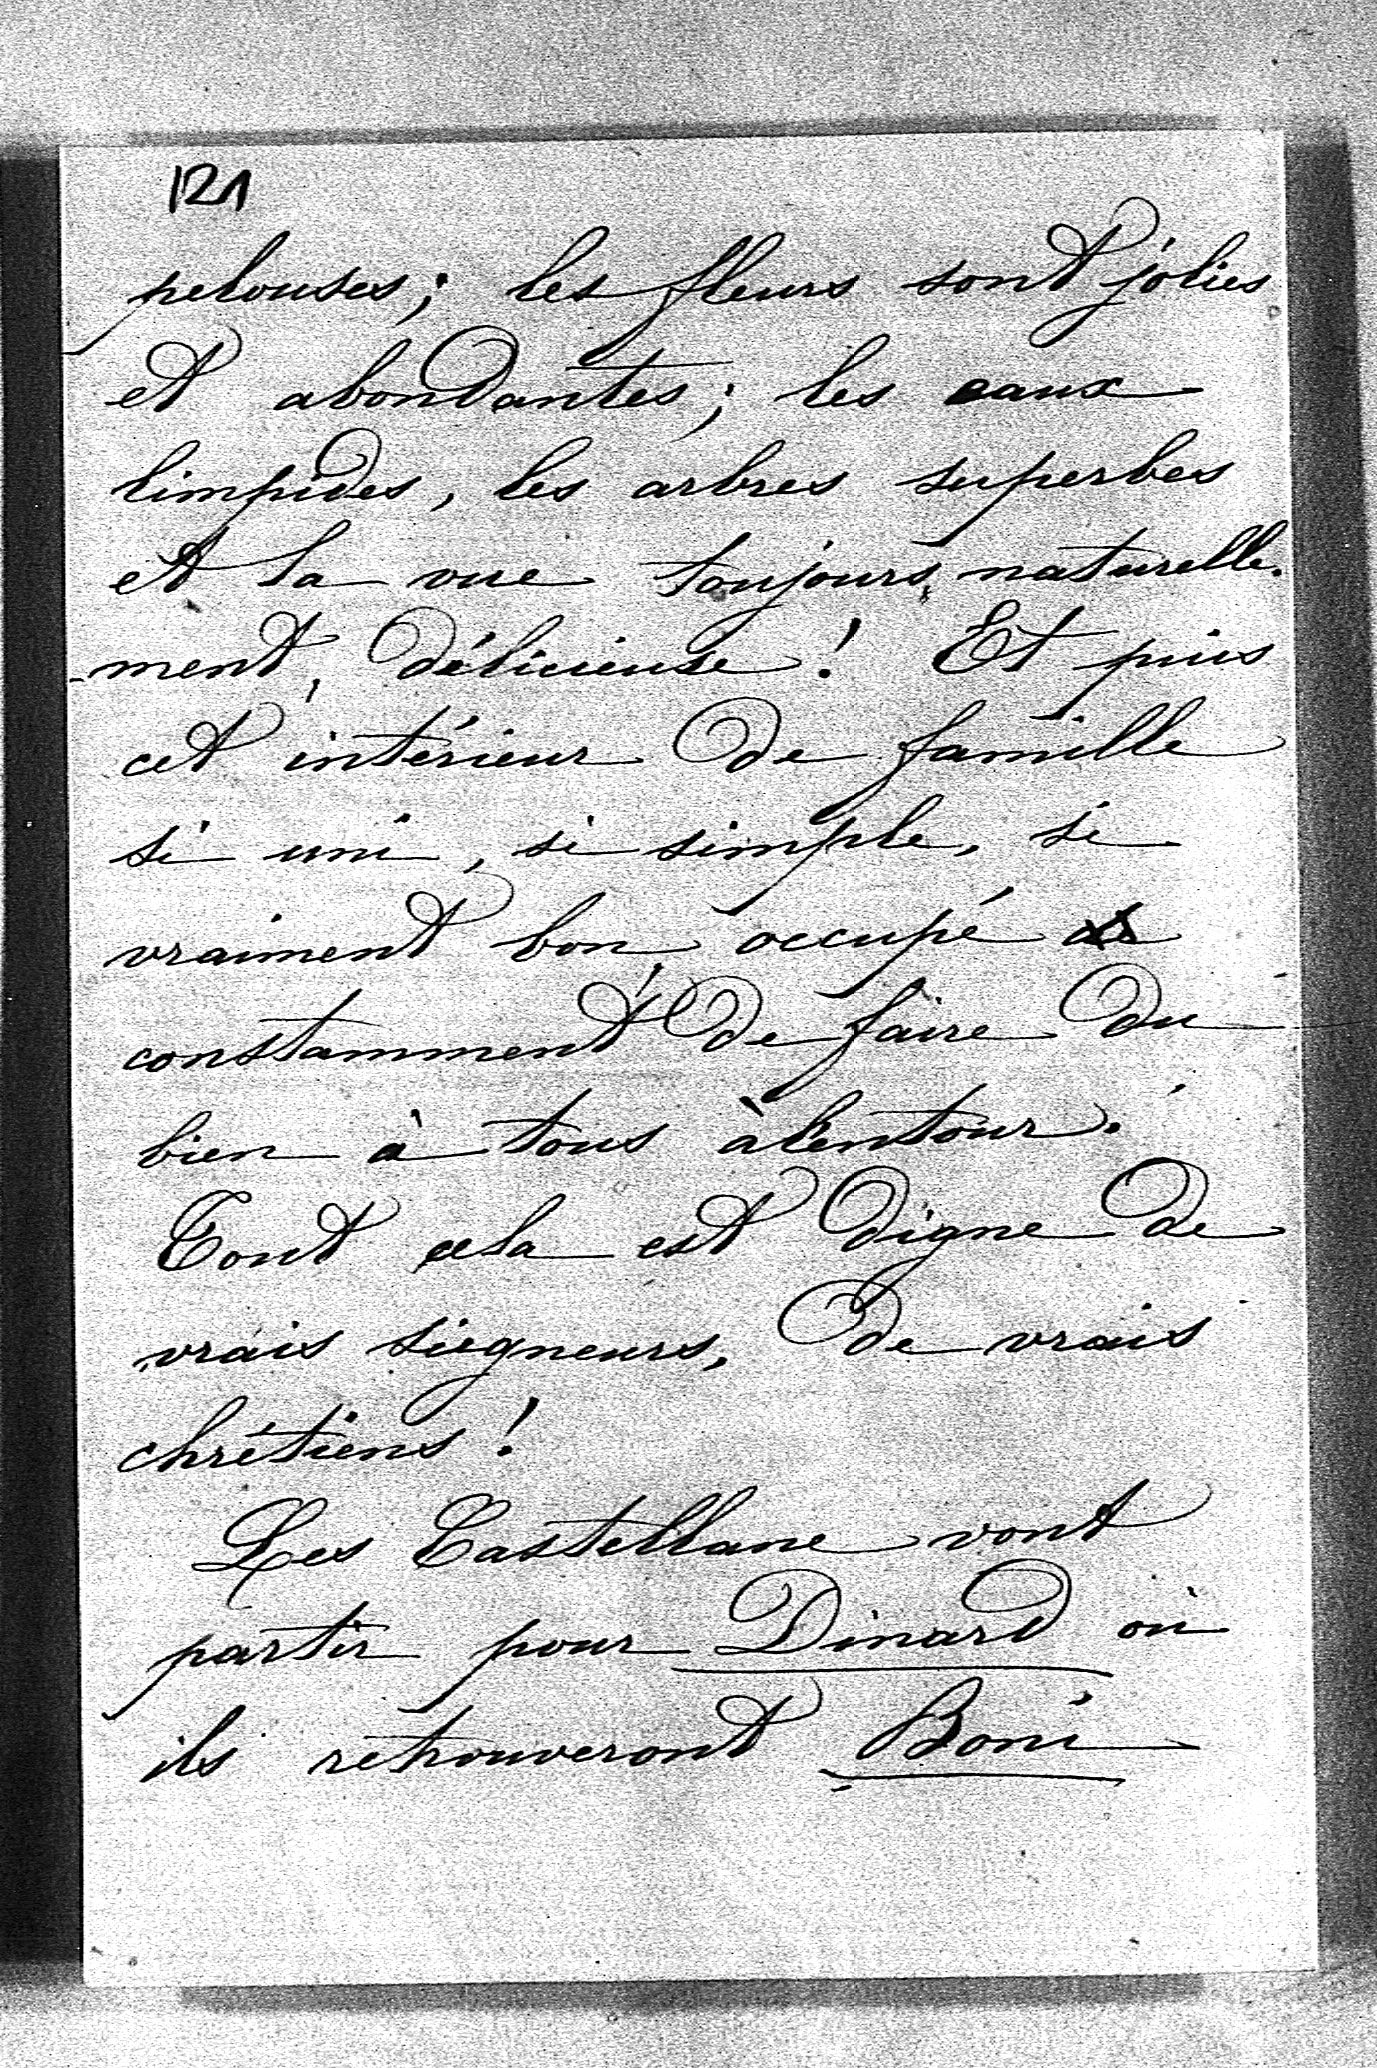 121
pelouses; les fleurs sont jolies
et abondantes; les eaux
limpides, les arbres superbes
et la vue toujours, naturelle-
-ment, délicieuse! Et puis
cet intérieur de famille
si uni, si simple, si
vraiment bon, occupé
constamment de faire du
bien à tous àlentour.
Tout cela est digne de
vrais siegneurs, de vrais
chrétiens!
Les Castellane vont
partir pour Dinard où
ils retrouveront Boni